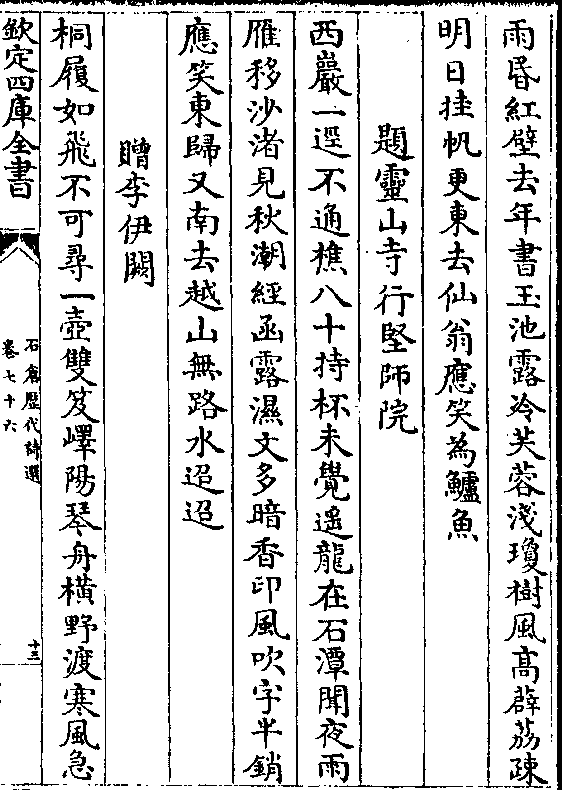 雨昏紅壁去年書玉池露冷芙蓉淺瓊樹風髙薜荔疎
明日挂帆更東去仙翁應笑為鱸魚
題靈山寺行堅師院
西巖一逕不通樵八十持杯未覺遙龍在石潭聞夜雨
雁移沙渚見秋潮經函露濕文多暗香印風吹字半銷
應笑東歸又南去越山無路水迢迢
贈李伊闕
桐履如飛不可尋一壺雙笈嶧陽琴舟橫野渡寒風急
欽定四庫全書
石倉歷代詩選
卷七十六
十三